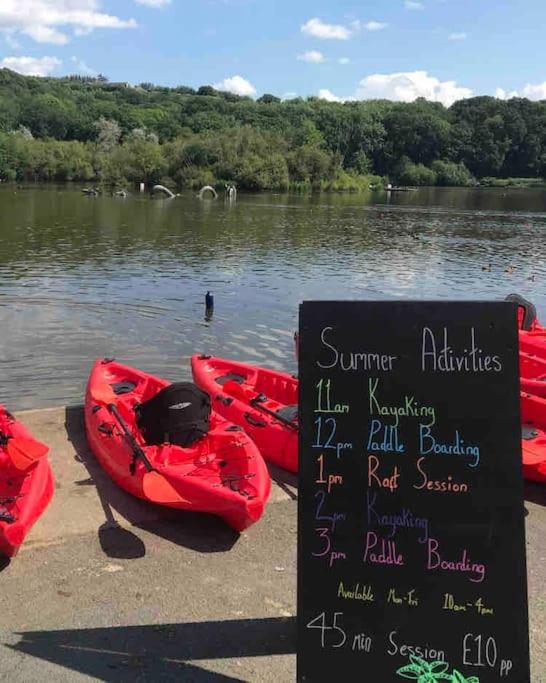 Summer Activities
11am Kayaking
12pm Paddle Boarding
1pm Raft Session
2pm Kayaking
3pm Paddle Boarding
Available Mon-Fri 10am-4pm
45 Min Session £10pp